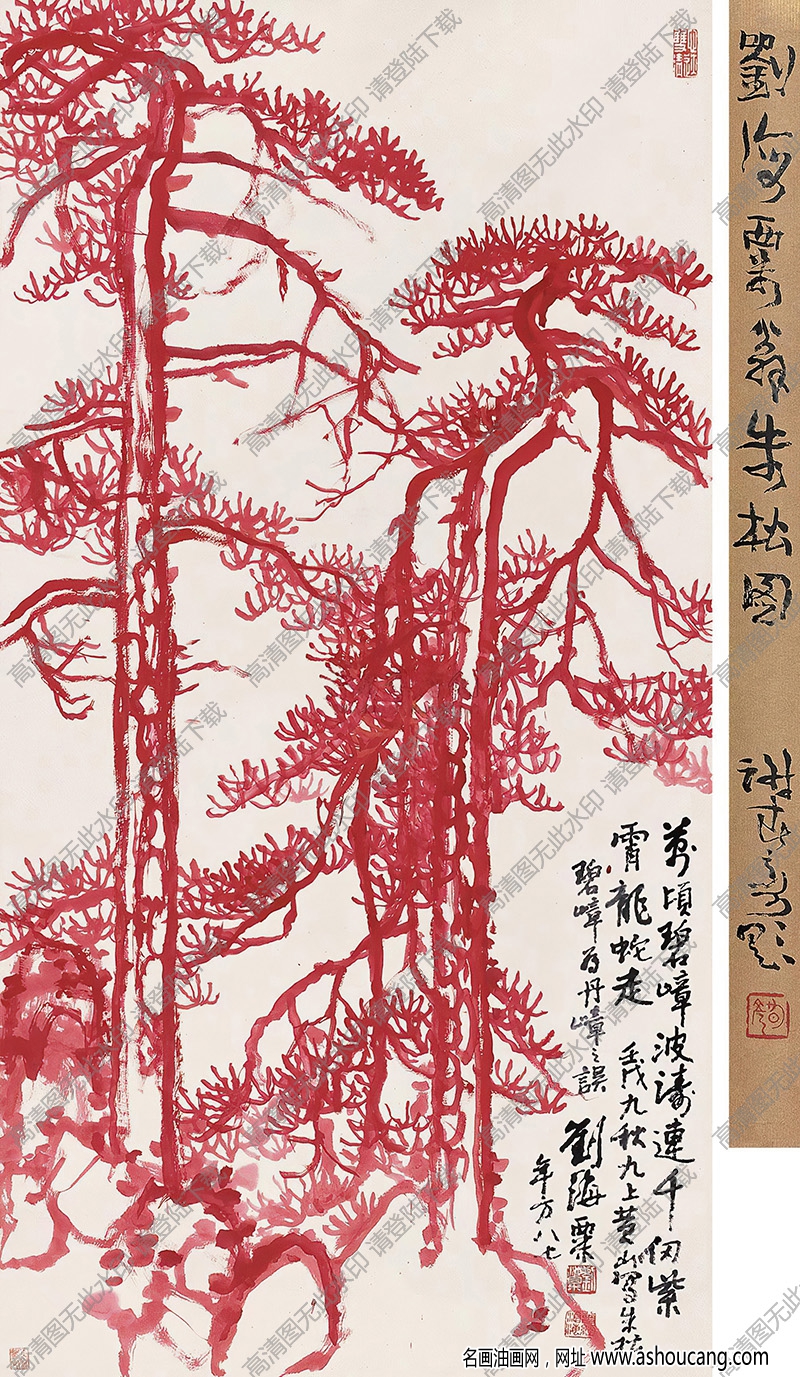 萬頃碧嶂波濤連千仞紫
霄龍蛇走
壬戌九秋九上黄山寫朱松
碧嶂為丹嶂之誤
劉海粟
年方八七
劉海粟翁朱松图
谢春彦題
高清图无此水印 请登陆下载
名画油画网，网址 www.ashoucang.com